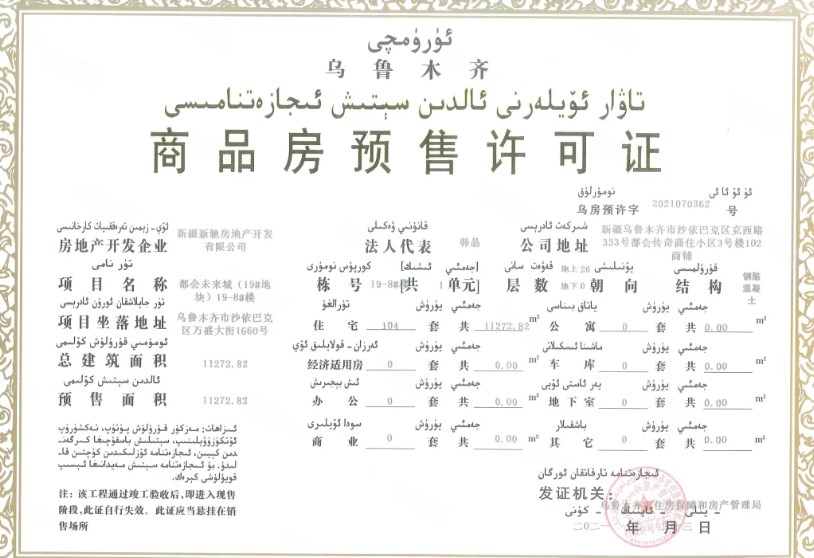 ئۈرۈمچى
乌鲁木齐
تاۋار ئۆيلەرنى ئالدىن سېتىش ئىجازەتنامىسى
商品房预售许可证
نومۇرلۇق
乌房预许字 2021070362 号
ئۆي - زېمىن تەرەققىيات كارخانىسى
房地产开发企业 新疆新驰房地产开发有限公司
قانۇنىي ۋەكىلى
法人代表 韩晶
شىركەت ئادرېسى
公司地址 新疆乌鲁木齐市沙依巴克区克西路
333号都会传奇商住小区3号楼102
商铺
تۈر نامى
项目名称 都会未来城(19#地
块)19-8#楼
كورپۇس نومۇرى [جەمئىي ئىشىك]
栋号 19-8# [共 1 单元]
قەۋەت سانى
层数 地上 26 地下 0
يۆنىلىشى
朝向
قۇرۇلمىسى
结构 钢筋
混凝
土
تۈر جايلاشقان ئورۇن ئادرېسى
项目坐落地址 乌鲁木齐市沙依巴克
区万盛大街1660号
تۇرالغۇ جەمئىي يۈرۈش
住宅 104 套 共 11272.82 m²
ياتاق بىناسى جەمئىي يۈرۈش
公寓 0 套 共 0.00 m²
ئومۇمىي قۇرۇلۇش كۆلىمى
总建筑面积 11272.82
ئەرزان - قولايلىق ئۆي جەمئىي يۈرۈش
经济适用房 0 套 共 0.00 m²
ماشىنا ئىسكىلاتى جەمئىي يۈرۈش
车库 0 套 共 0.00 m²
ئالدىن سېتىش كۆلىمى
预售面积 11272.82
ئىش بېجىرىش جەمئىي يۈرۈش
办公 0 套 共 0.00 m²
يەر ئاستى ئۆيى جەمئىي يۈرۈش
地下室 0 套 共 0.00 m²
سودا ئۆيلىرى جەمئىي يۈرۈش
商业 0 套 共 0.00 m²
باشقىلار جەمئىي يۈرۈش
其它 0 套 共 0.00 m²
注：该工程通过竣工验收后,即进入现售
阶段,此证自行失效。此证应当悬挂在销
售场所
ئىجازەتنامە تارقاتقان ئورگان
发证机关: 乌鲁木齐市住房保障和房产管理局
يىلى - ئاينىڭ - كۈنى
年 月 日